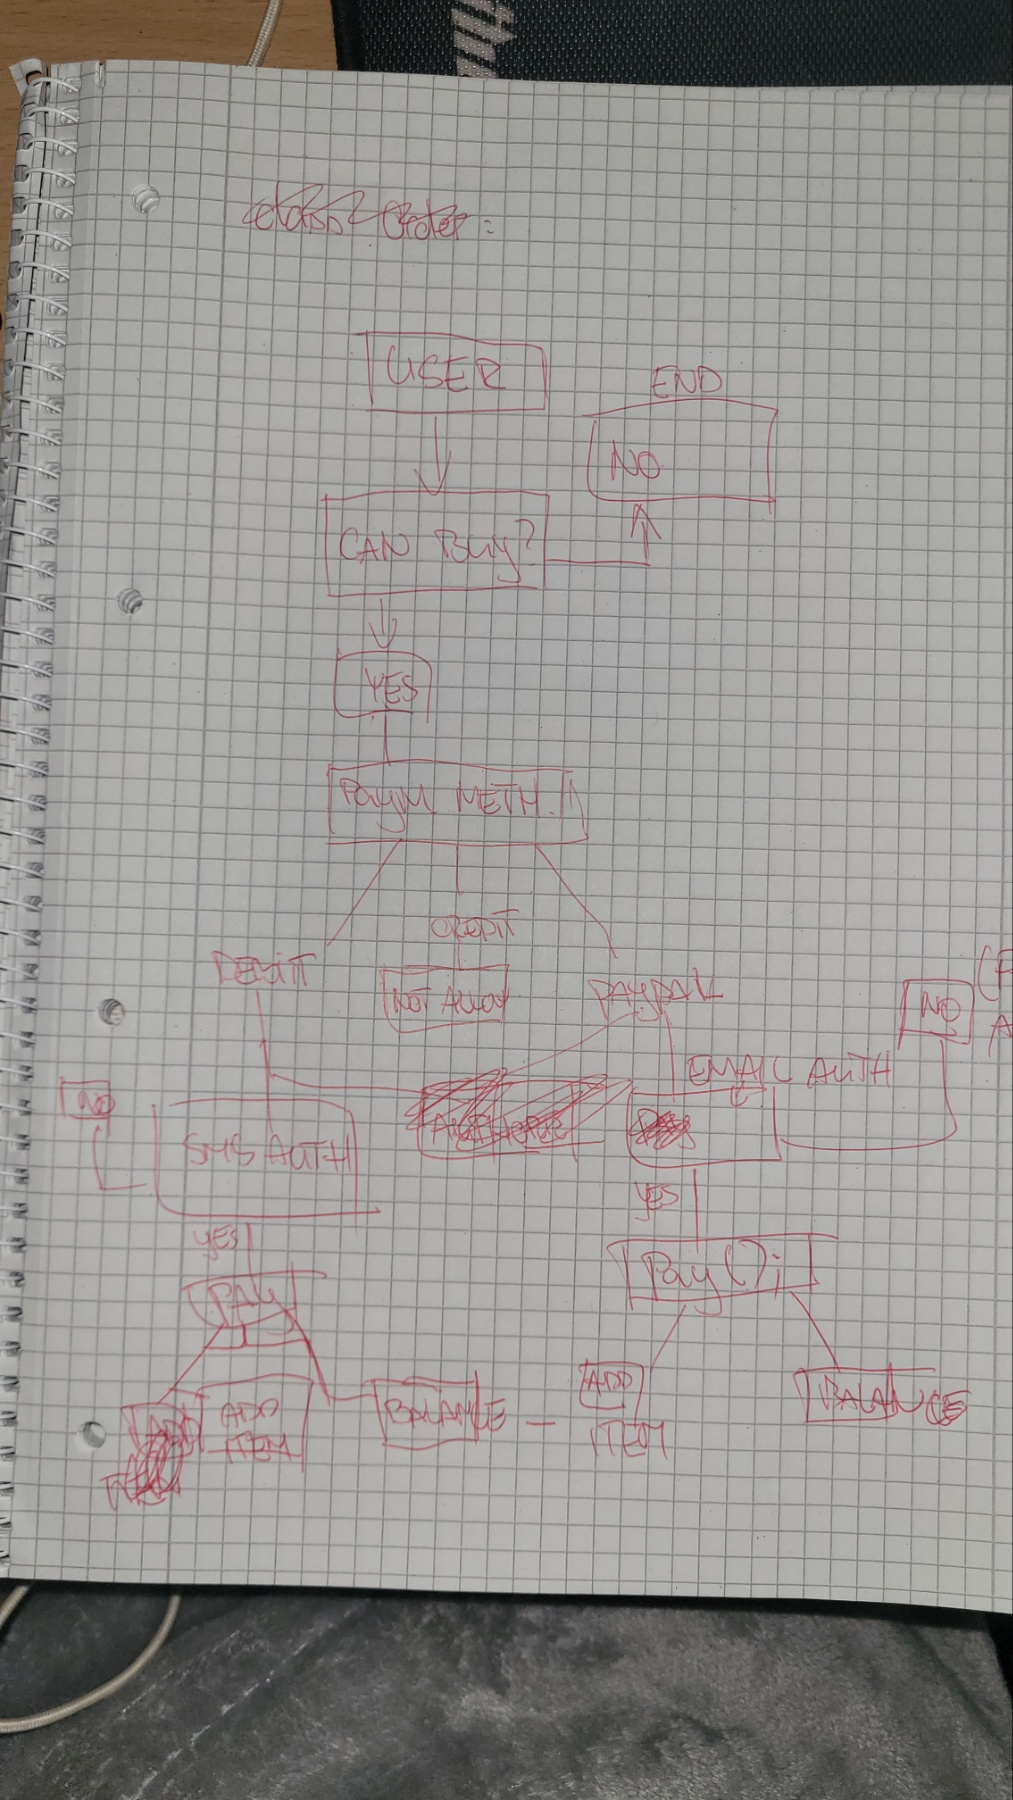 USER
END
NO
CAN Buy?
YES
Paym. METH.
CREDIT
DEBIT
NOT Allow
PAYPAL
NO
EMAIL AUTH
NO
SMS AUTH
YES
YES
Pay();
PAY
ADD
ITEM
BALANCE
ADD
ITEM
BALANCE